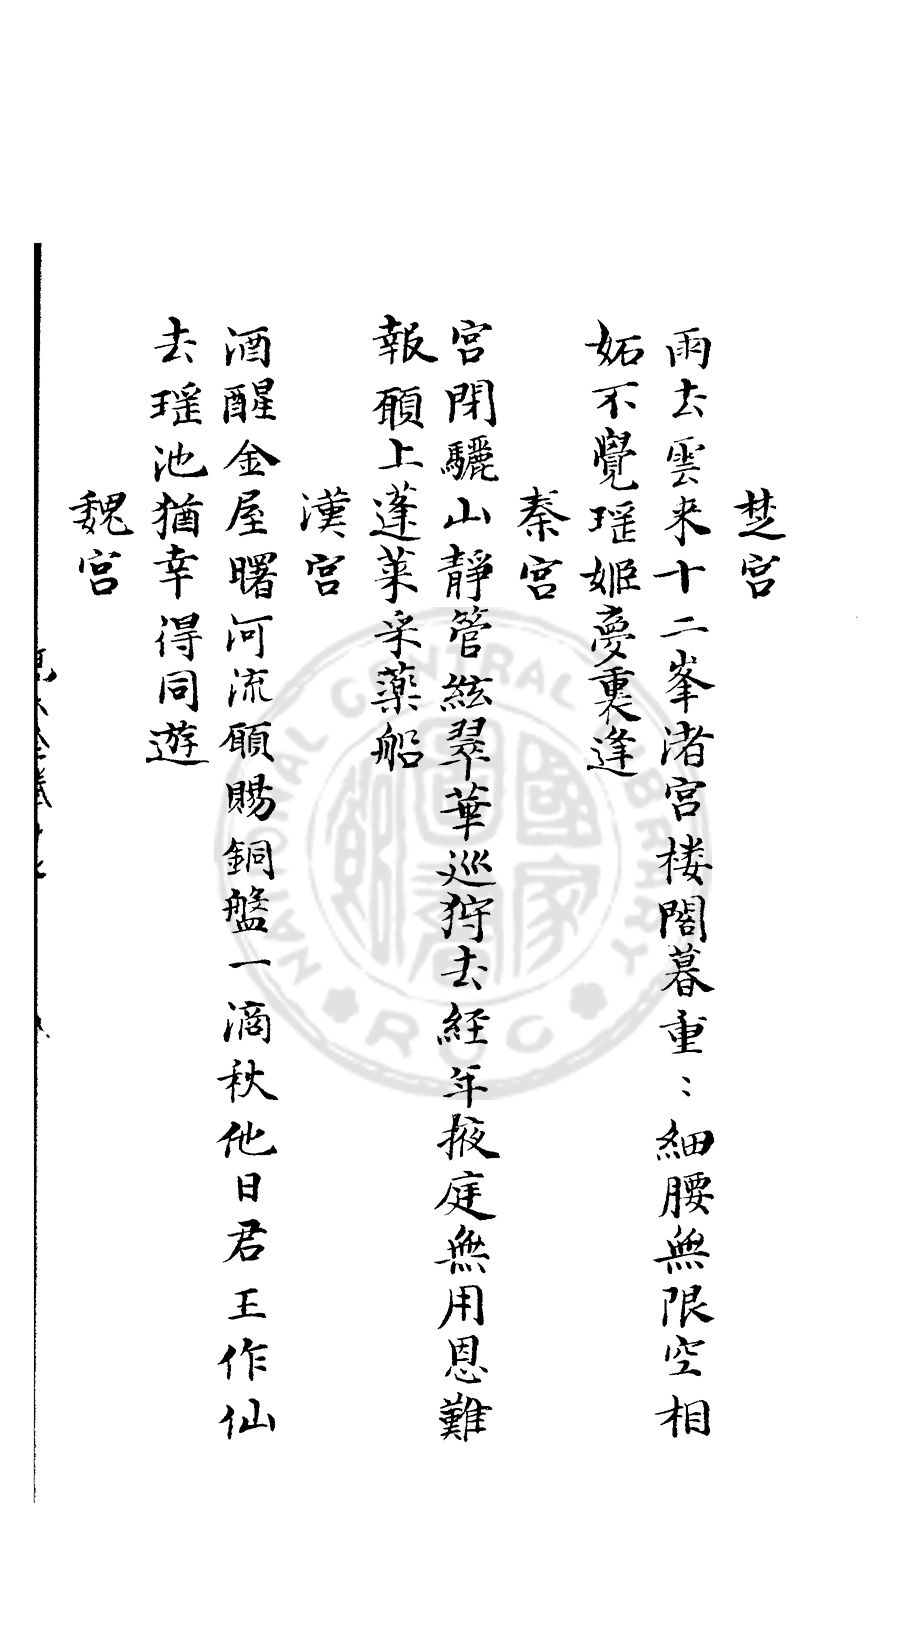 楚宮
雨去雲来十二峯渚宮楼閣暮重〻細腰無限空相
妬不覺瑶姬夢裏逢
秦宮
宮閉驪山靜管絃翠華巡狩去経年掖庭無用恩難
報願上蓬莱采薬船
漢宮
酒醒金屋曙河流願賜銅盤一滴秋他日君王作仙
去瑶池猶幸得同遊
魏宮
NATIONAL CENTRAL LIBRARY
ROC
國家圖書館